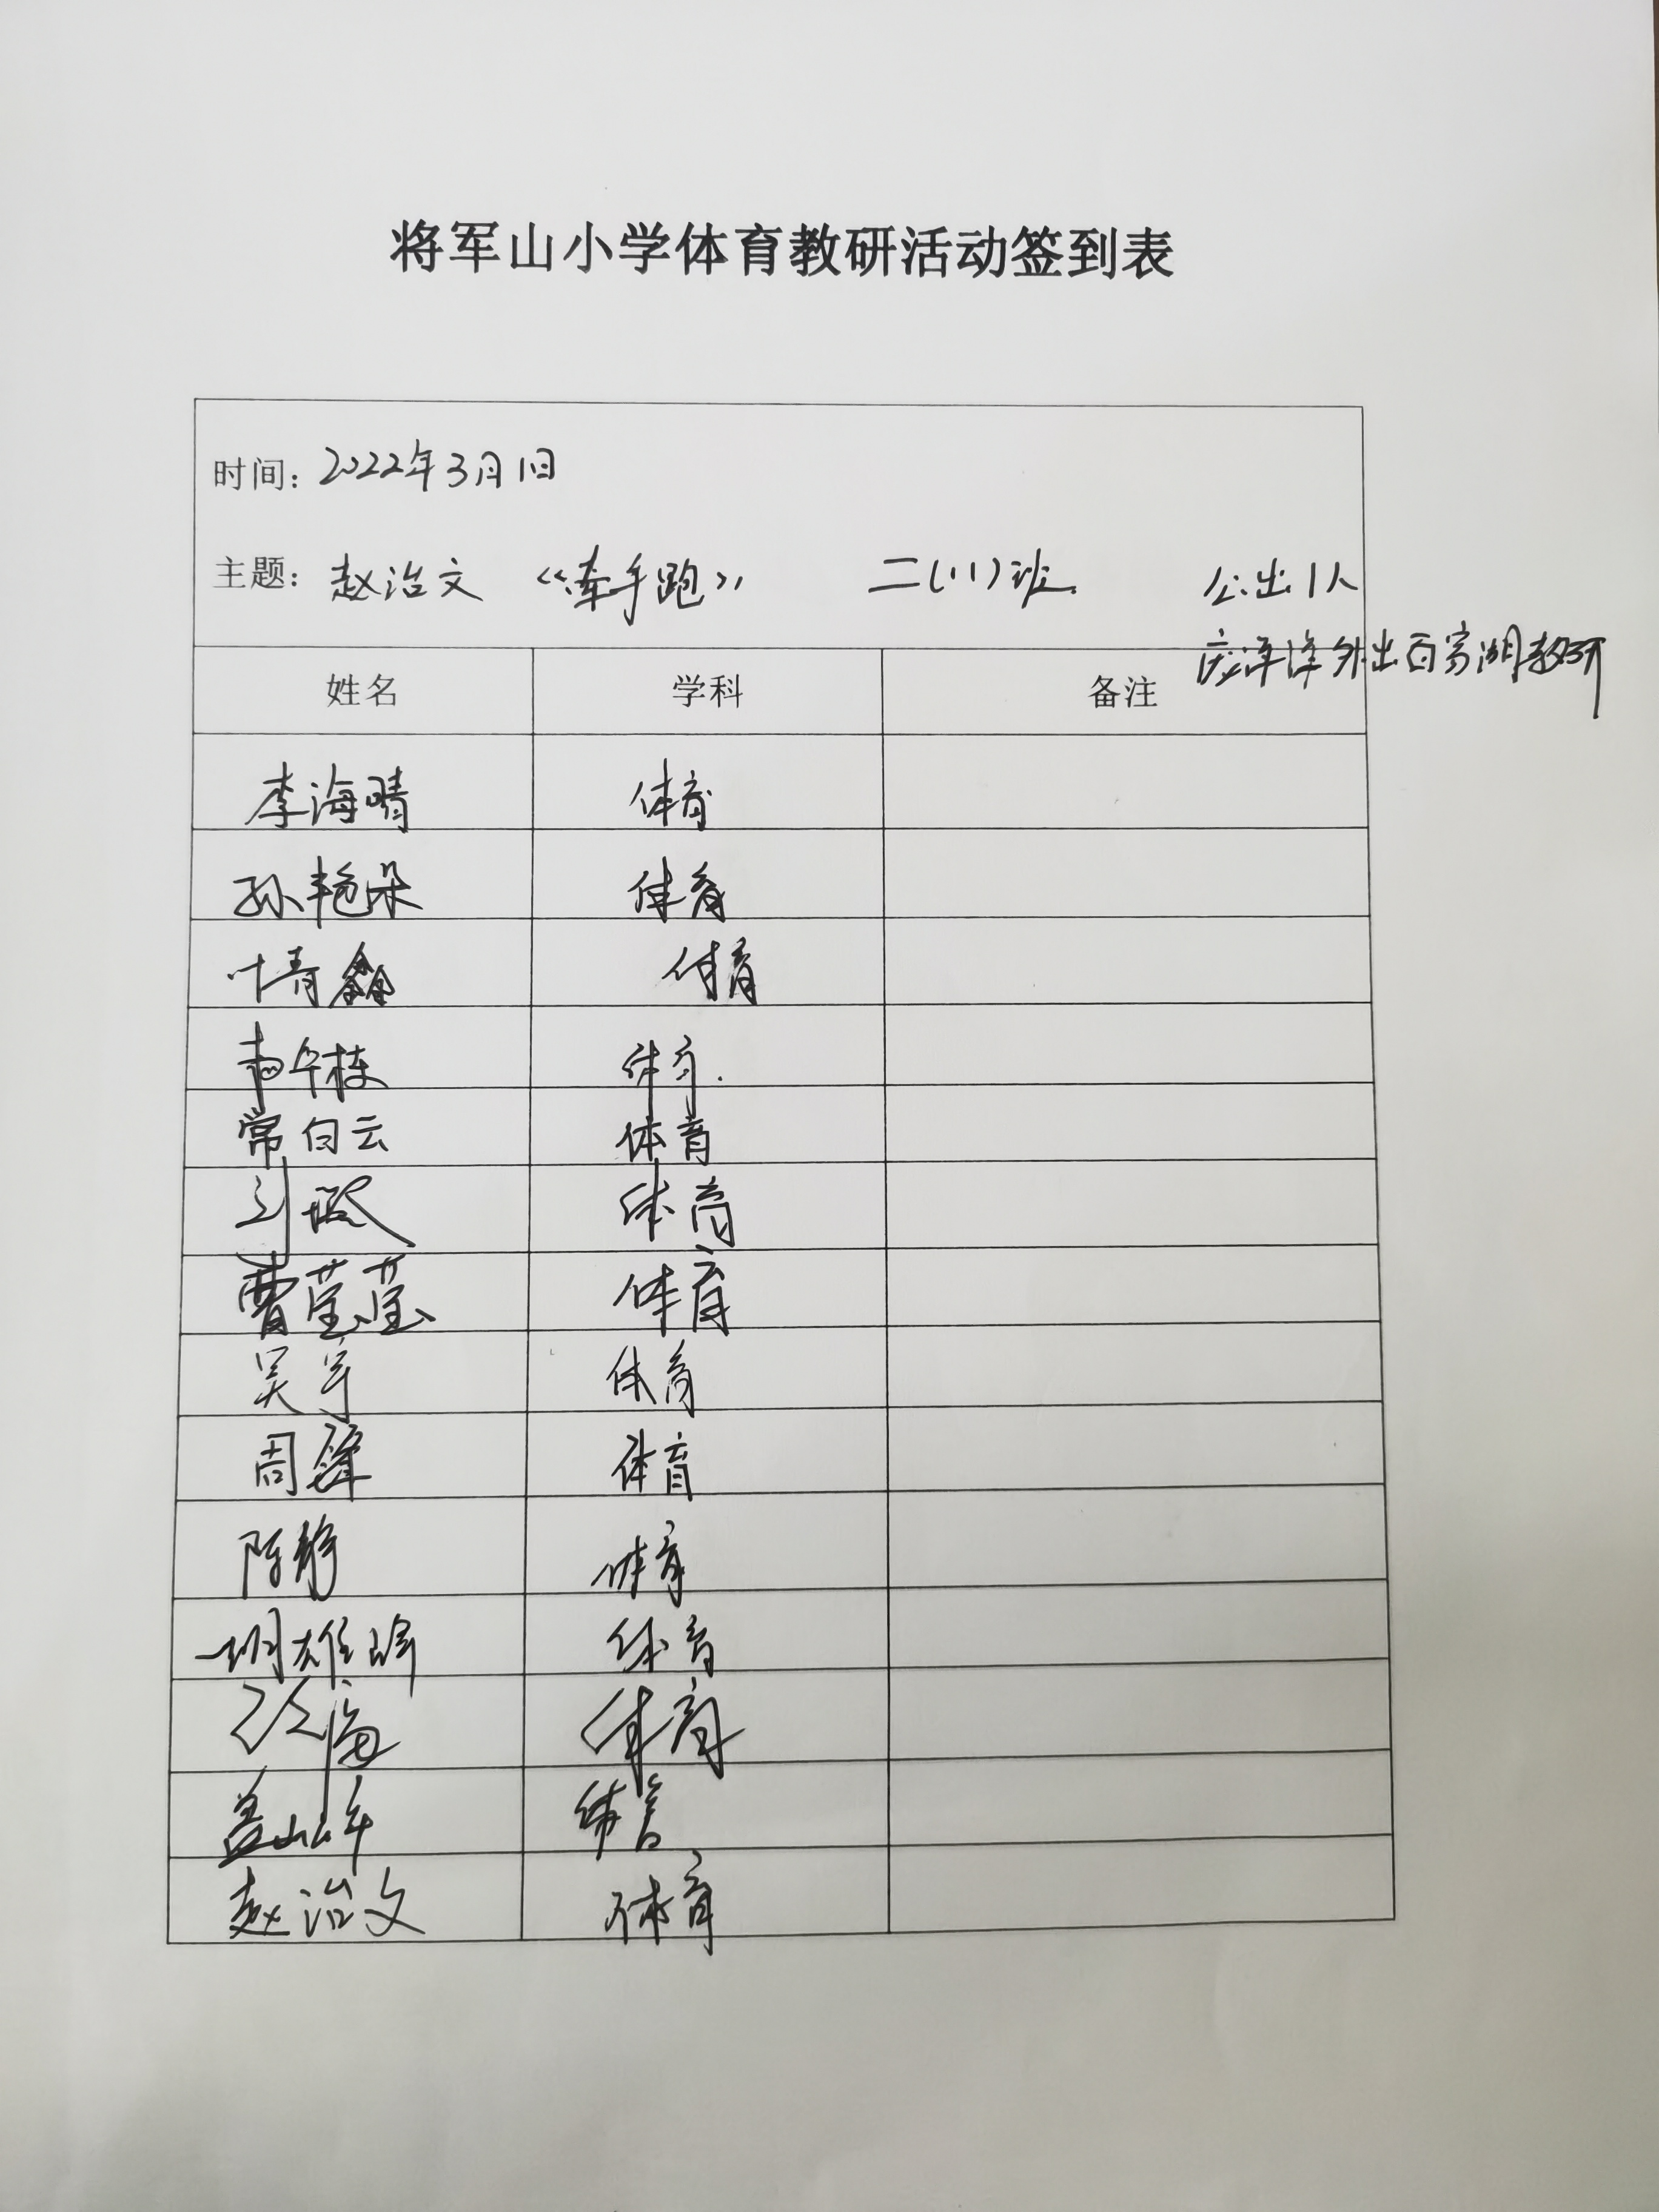 将军山小学体育教研活动签到表
时间：2022年3月1日
主题：赵治文 《牵手跑》 二(11)班 公出1人
庞泽洋外出百家湖教研
姓名 学科 备注
李海晴 体育
孙艳朵 体育
叶青鑫 体育
体育
常白云 体育
刘 体育
曹莹莹 体育
吴宇 体育
周 体育
陈静 体育
体育
体育
盖山峰 体育
赵治文 体育